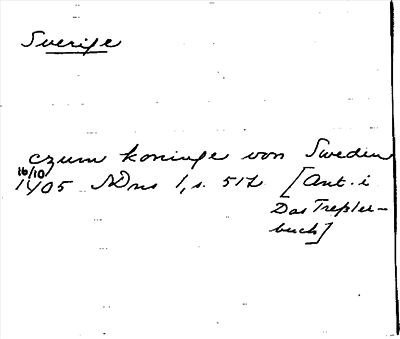 Sverige
czum koninge von Sweden
16/10
1405 SDns 1, s. 517 [Ant. i
Das Treßler-
buch]